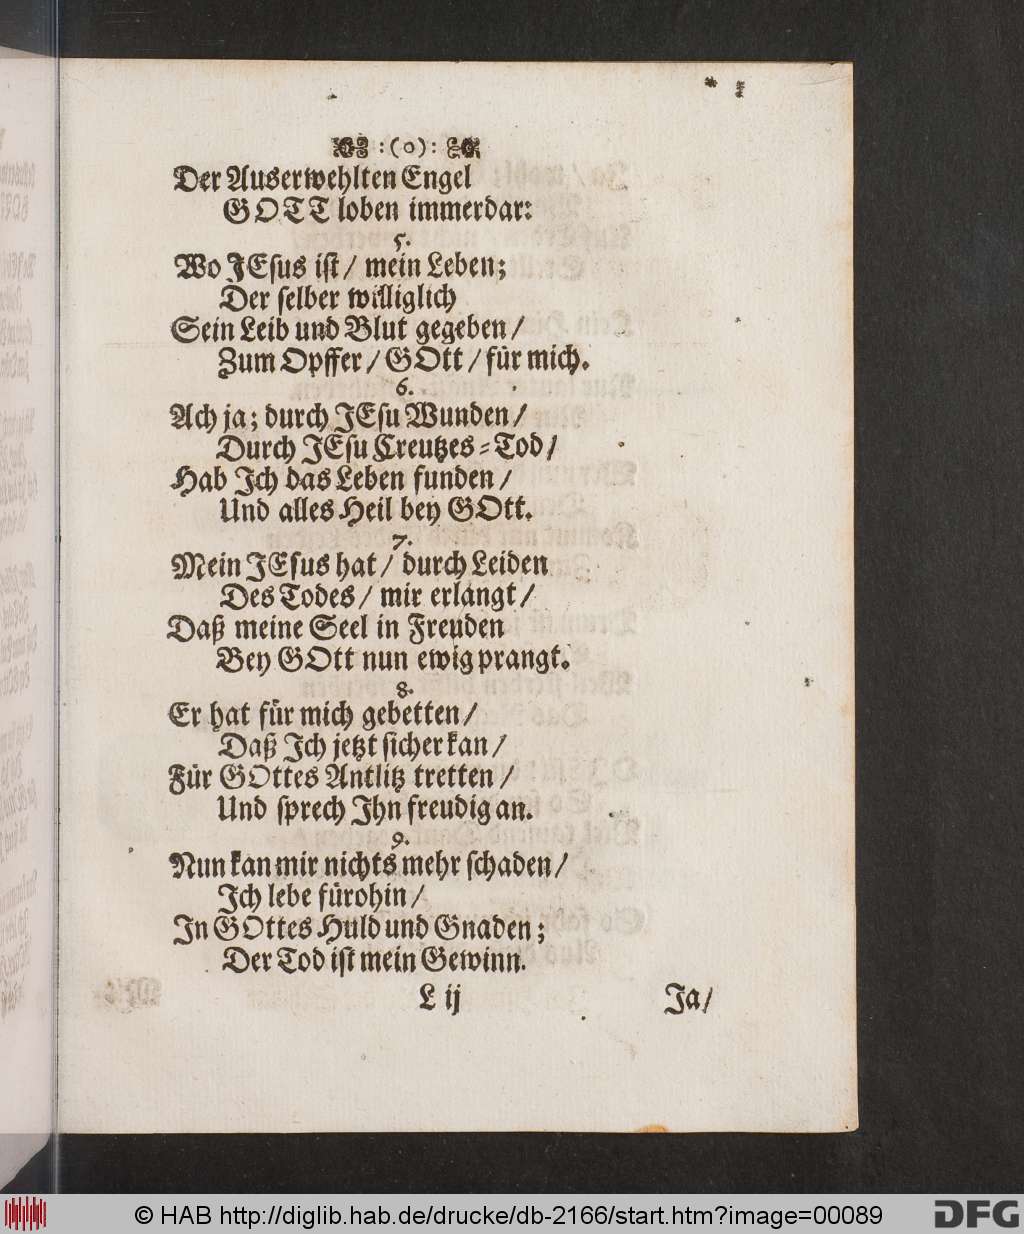 :(o):
Der Auserwehlten Engel
GOTT loben immerdar:
5.
Wo JEsus ist/ mein Leben;
Der selber williglich
Sein Leib und Blut gegeben/
Zum Opffer/ GOtt/ für mich.
6.
Ach ja; durch JEsu Wunden/
Durch JEsu Creutzes-Tod/
Hab Ich das Leben funden/
Und alles Heil bey GOtt.
7.
Mein JEsus hat/ durch Leiden
Des Todes/ mir erlangt/
Daß meine Seel in Freuden
Bey GOtt nun ewig prangt.
8.
Er hat für mich gebetten/
Daß Ich jetzt sicher kan/
Für GOttes Antlitz tretten/
Und sprech Ihn freudig an.
9.
Nun kan mir nichts mehr schaden/
Ich lebe fürohin/
In GOttes Huld und Gnaden;
Der Tod ist mein Gewinn.
L ij
Ja/
© HAB http://diglib.hab.de/drucke/db-2166/start.htm?image=00089
DFG